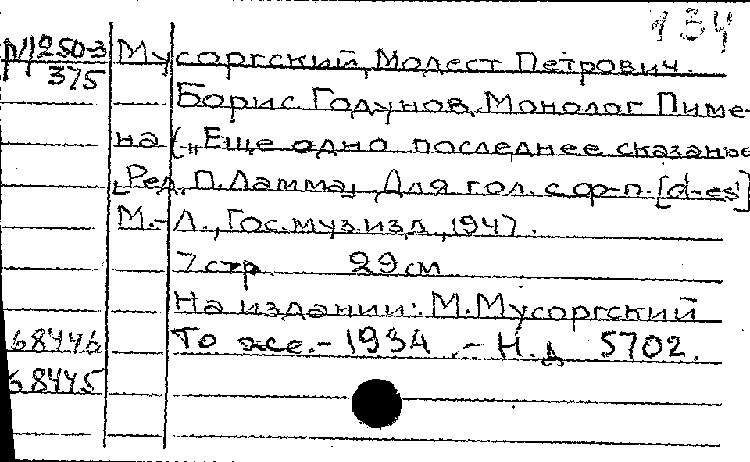 134
Мусоргский, Модест Петрович.
375
Борис Годунов. Монолог Пиме-
на („Еще одно последнее сказанье
Ред. П. Ламма, Для гол. с ф-п. [d-es']
М.-Л., Гос. муз. изд., 1947.
7 стр. 29 см.
На издании: М. Мусоргский
68446 То же.- 1934 .- Н.д. 5702.
68445